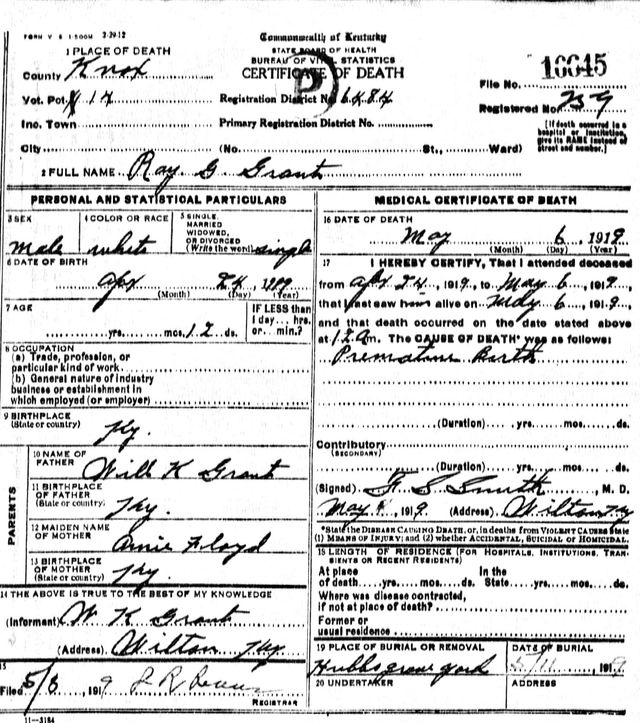 FORM V S 1-500M 2-29-12
Commonwealth of Kentucky
STATE BOARD OF HEALTH
BUREAU OF VITAL STATISTICS
CERTIFICATE OF DEATH
1 PLACE OF DEATH
County Knox
Vot. Pct. 14
Inc. Town
City
Registration District No. 6484
Primary Registration District No.
(No. St., Ward)
File No. 16645
Registered No. 
[If death occurred in a
hospital or institution,
give its NAME instead of
street and number.]
2 FULL NAME Ray G. Grant
PERSONAL AND STATISTICAL PARTICULARS
3 SEX
male
4 COLOR OR RACE
white
5 SINGLE,
MARRIED
WIDOWED,
OR DIVORCED
(Write the word) single
6 DATE OF BIRTH
Apr 24, 1919
(Month) (Day) (Year)
7 AGE
yrs. mos. 12 ds.
IF LESS than
1 day... hrs.
or... min.?
8 OCCUPATION
(a) Trade, profession, or
particular kind of work
(b) General nature of industry
business or establishment in
which employed (or employer)
9 BIRTHPLACE
(State or country) Ky.
PARENTS
10 NAME OF
FATHER Will K Grant
11 BIRTHPLACE
OF FATHER
(State or country) Ky.
12 MAIDEN NAME
OF MOTHER Annie Floyd
13 BIRTHPLACE
OF MOTHER
(State or country) Ky.
14 THE ABOVE IS TRUE TO THE BEST OF MY KNOWLEDGE
(Informant) W K Grant
(Address) Wilton Ky.
15
Filed 5/8, 1919
REGISTRAR
11-3184
MEDICAL CERTIFICATE OF DEATH
16 DATE OF DEATH
May 6, 1919
(Month) (Day) (Year)
17 I HEREBY CERTIFY, That I attended deceased
from Apr 24, 1919, to May 6, 1919,
that I last saw him alive on May 6, 1919,
and that death occurred on the date stated above
at 12 a m. The CAUSE OF DEATH* was as follows:
Premature Birth
(Duration) yrs. mos. ds.
Contributory
(SECONDARY)
(Duration) yrs. mos. ds.
(Signed) F S Smith, M. D.
May, 1919 (Address) Wilton Ky
*State the DISEASE CAUSING DEATH, or, in deaths from VIOLENT CAUSES State
(1) MEANS OF INJURY; and (2) whether ACCIDENTAL, SUICIDAL or HOMICIDAL.
18 LENGTH OF RESIDENCE (FOR HOSPITALS, INSTITUTIONS, TRAN-
SIENTS OR RECENT RESIDENTS)
At place In the
of death yrs. mos. ds. State yrs. mos. ds.
Where was disease contracted,
if not at place of death?
Former or
usual residence
19 PLACE OF BURIAL OR REMOVAL
Hubbs grave yard
DATE OF BURIAL
5/11, 1919
20 UNDERTAKER
ADDRESS